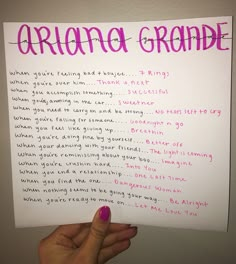 ARIANA GRANDE
when you're feeling bad + boujee.... 7 Rings
when you're over him.... Thank u, next
when you accomplish something.... Successful
when going in the car.... Sweetener
when you need to carry on and be strong.... no tears left to cry
when you're falling for someone.... Goodnight n go
when you feel like giving up.... Breathin
when you're doing one by yourself.... Better off
when your dancing with your friends.... The light is coming
when you're reminissing about your boo.... Imagine
when you're crushin hard.... Into You
when you end a relationship.... One Last Time
when you find the one.... Dangerous Woman
when nothing seems to be going your way.... Be Alright
when you're ready to move on.... Let Me Love You